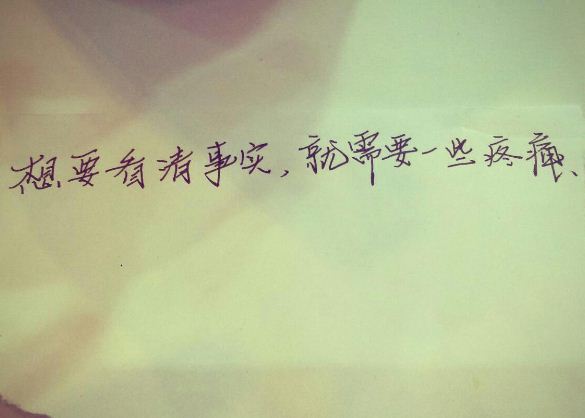 想要看清事实，就需要一些疼痛、